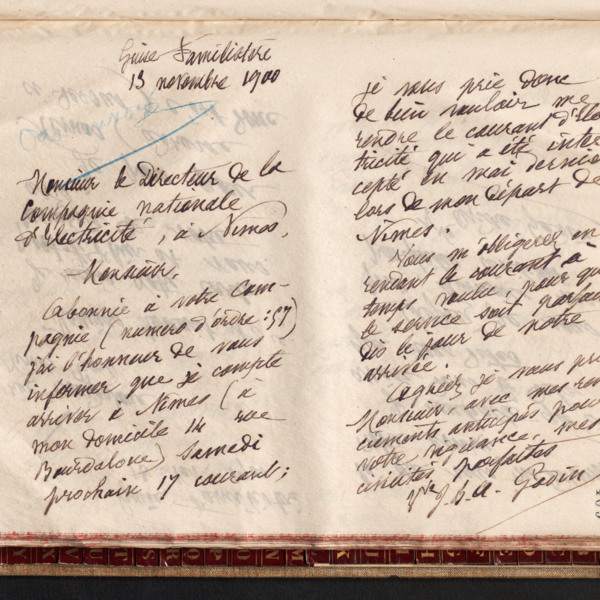 Guise Familistère
13 novembre 1900
Monsieur le Directeur de la
Compagnie nationale
d'Electricité, à Nîmes.
Monsieur,
Abonnée à votre Com-
pagnie (numéro d'ordre : 57)
j'ai l'honneur de vous
informer que je compte
arriver à Nîmes (à
mon domicile 14 rue
Bourdaloue) samedi
prochain 17 courant;
je vous prie donc
de bien vouloir me
rendre le courant d'Elec
tricité qui a été inter
cepté en mai dernier
lors de mon départ de
Nîmes.
Vous m'obligerez en
rendant le courant à
temps voulu, pour que
le service soit parfait
dès le jour de notre
arrivée.
Agréez, je vous prie
Monsieur, avec mes remer
ciements anticipés pour
votre vigilance, mes
civilités parfaites
Vve J. B. A. Godin